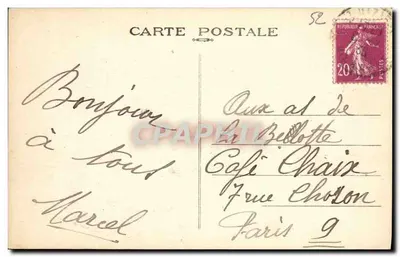 CARTE POSTALE
52
REPUBLIQUE FRANÇAISE
20
POSTES
Bonjour
à tous
Marcel
Aux as de
la Bellotte
Café Chaix
7 rue Choron
Paris 9